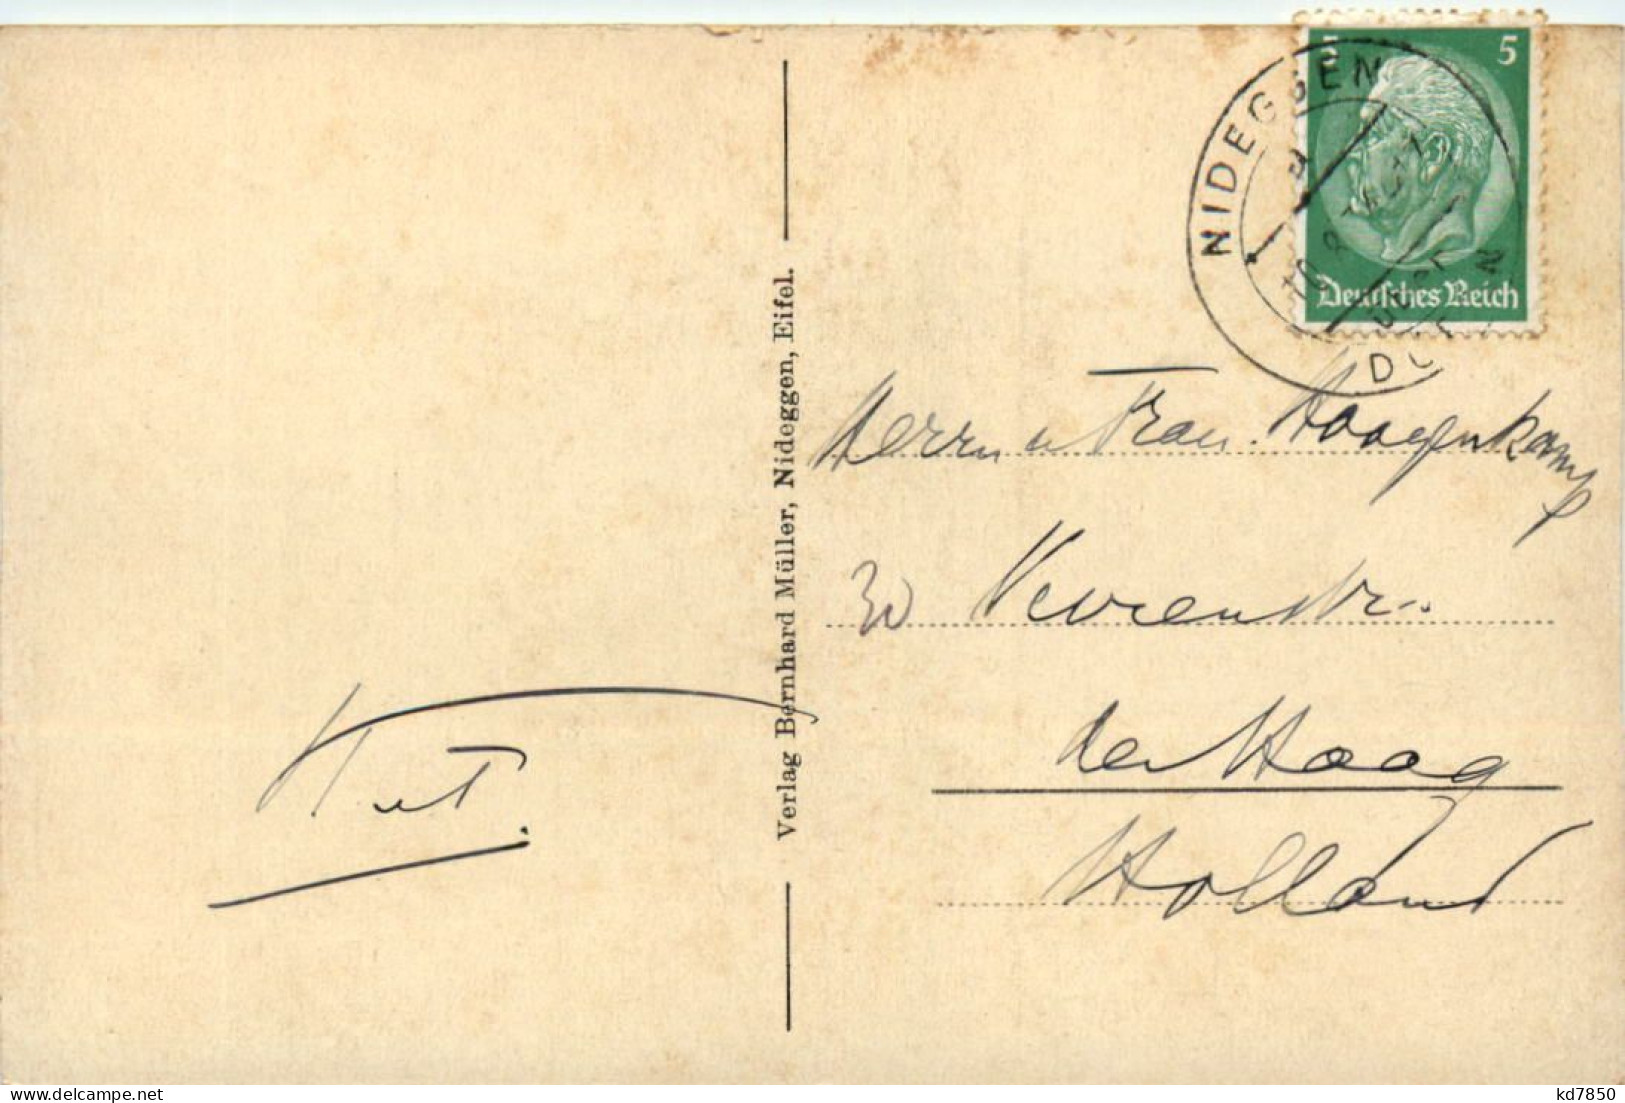 5 5
Deutsches Reich
NIDEGGEN
Verlag Bernhard Müller, Nideggen, Eifel.
Herrn u Frau. Haagenkamp
30
den Haag
Holland
kd7850